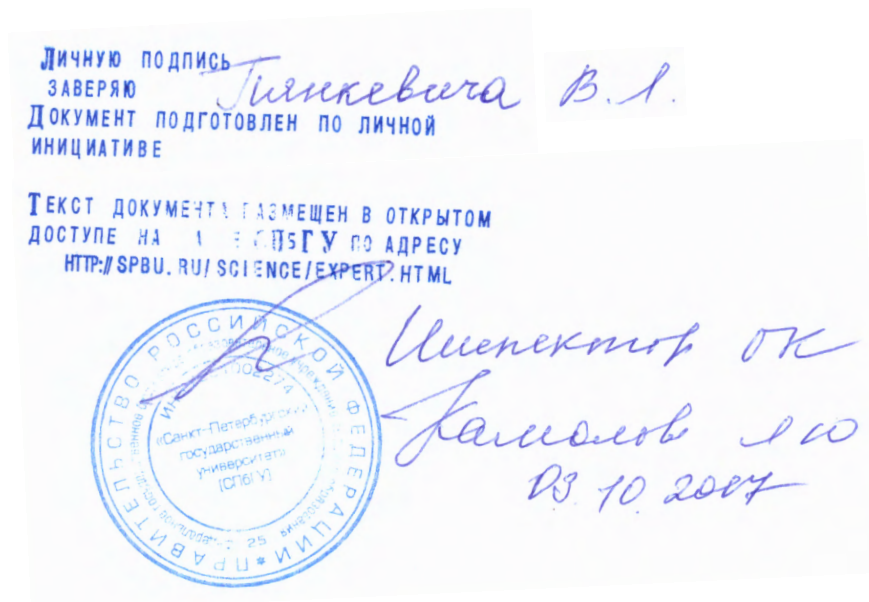 Личную подпись
заверяю Пянкевича В.Л.
Документ подготовлен по личной
инициативе
Текст документа размещен в открытом
доступе на СПбГУ по адресу
HTTP://SPBU.RU/SCIENCE/EXPERT.HTML
ПРАВИТЕЛЬСТВО РОССИЙСКОЙ ФЕДЕРАЦИИ
«Санкт-Петербургский
государственный
университет»
[СПбГУ]
25
Инспектор ОК
03.10.2017